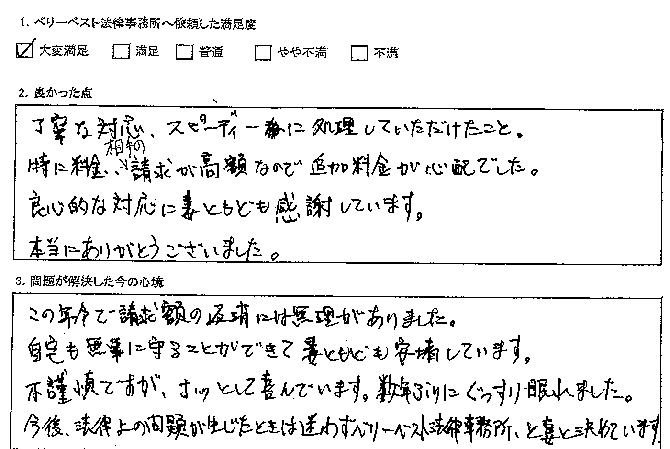 1. ベリーベスト法律事務所へ依頼した満足度
大変満足 満足 普通 やや不満 不満
2. 良かった点
丁寧な対応、スピーディーに処理していただけたこと。
相手の
特に料金、請求が高額なので追加料金が心配でした。
良心的な対応に妻ともども感謝しています。
本当にありがとうございました。
3. 問題が解決した今の心境
この年令で請求額の返済には無理がありました。
自宅も無事に守ることができて妻ともども安堵しています。
不謹慎ですが、ホッとして喜んでいます。数年ぶりにぐっすり眠れました。
今後、法律上の問題が生じたときは迷わずベリーベスト法律事務所、と妻と決めています